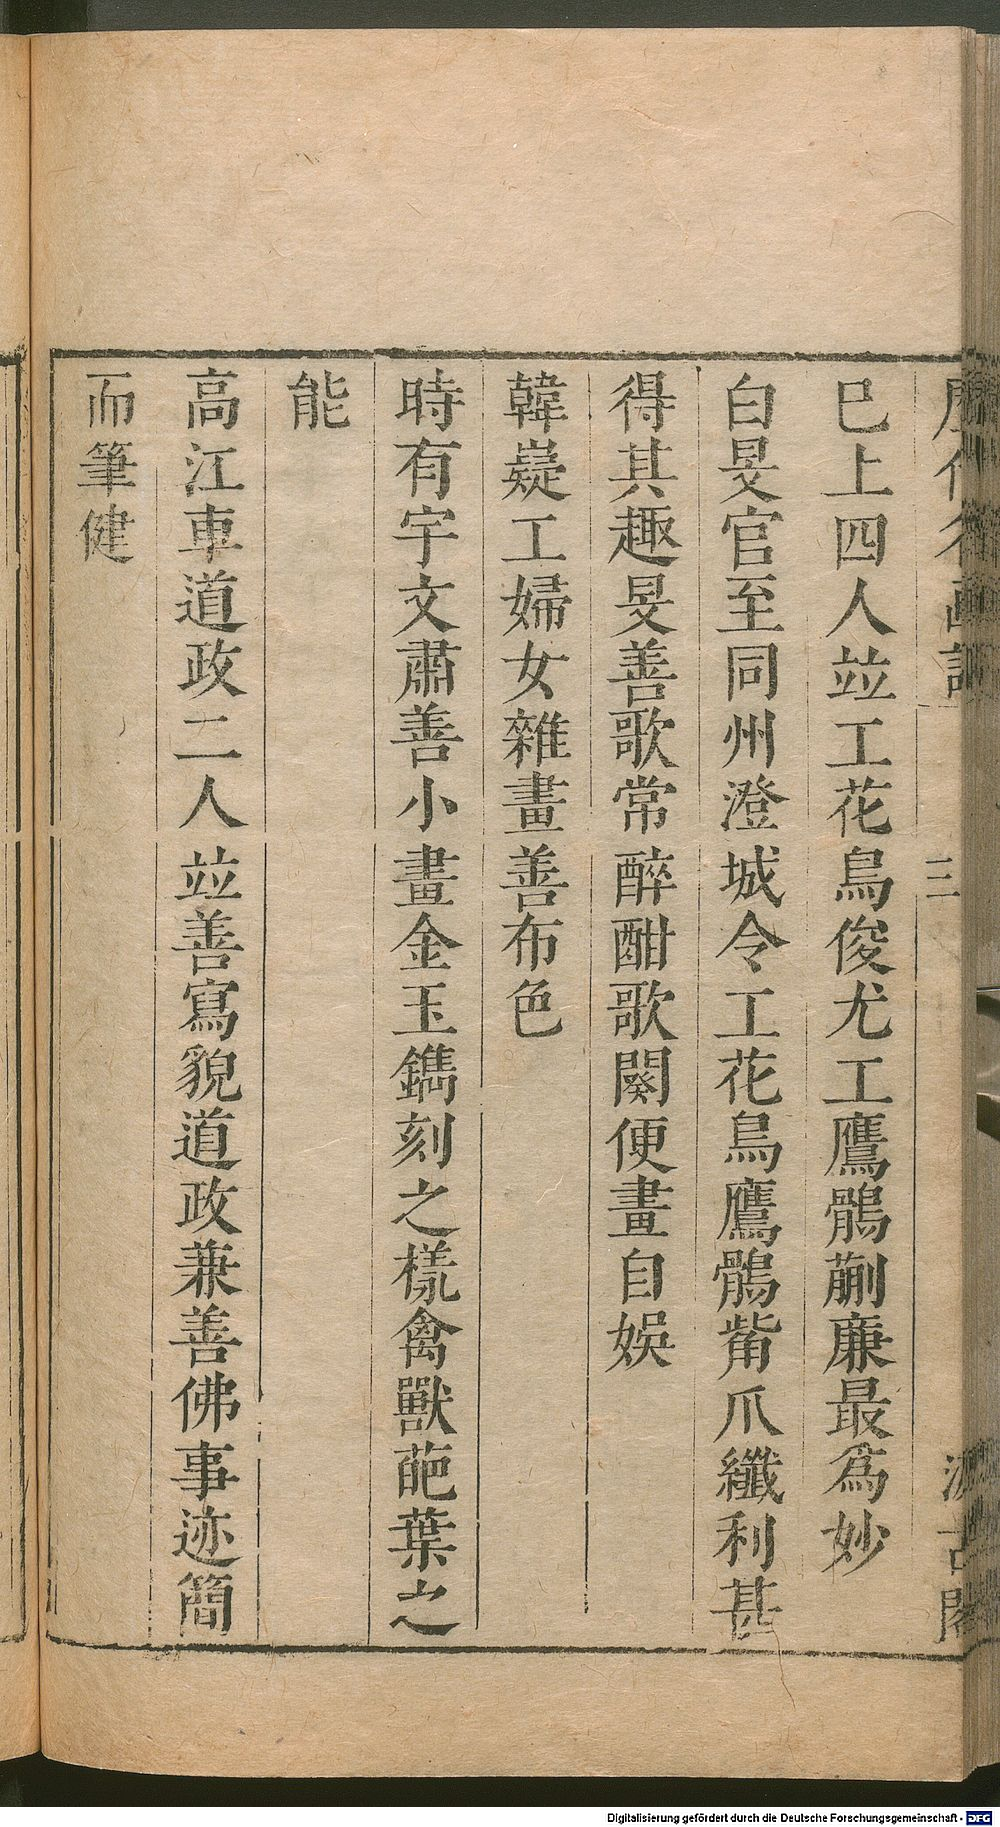 歷代名畫記
三
汲古閣
巳上四人竝工花鳥俊尤工鷹鶻蒯廉最爲妙
白旻官至同州澄城令工花鳥鷹鶻觜爪纖利甚
得其趣旻善歌常醉酣歌闋便畫自娛
韓嶷工婦女雜畫善布色
時有宇文肅善小畫金玉鐫刻之㨾禽獸葩葉之
能
高江車道政二人竝善寫貌道政兼善佛事迹簡
而筆健
Digitalisierung gefördert durch die Deutsche Forschungsgemeinschaft - DFG